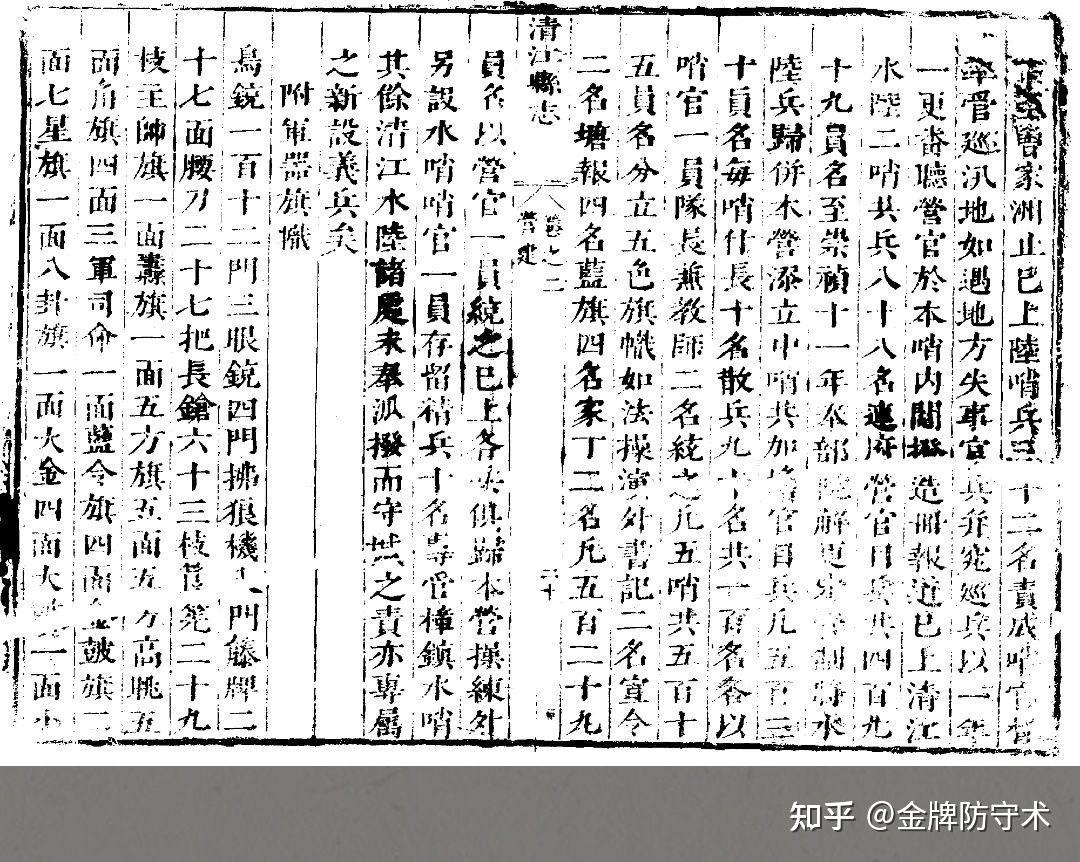 曹家洲止已上陸哨兵三十二名責成哨官
管巡汛地如遇地方失事官兵并究巡兵以一年
一更畨聽營官於本哨內閣撥造冊報道已上清江
水陸二哨共兵八十八名連府營官目兵共四百九
十九員名至崇禎十一年本部院解更定營制將水
陸兵歸併本營添立中哨共加增官目兵凡五百三
十員名每哨什長十名散兵九十名共一百名各以
哨官一員隊長兼教師二名統之凡五哨共五百十
五員名分立五色旗幟如法操演外書記二名宣令
二名塘報四名藍旗四名家丁二名凡五百二十九
清江縣志
卷之二
營建
三十
員名以營官一員統之已上各兵俱歸本營操練外
另設水哨哨官一員存留精兵十名專管樁鎖水哨
其餘清江水陸諸處未奉派撥而守禦之責亦專屬
之新設義兵矣
附軍器旗幟
鳥銃一百十二門三眼銃四門拂狼機九門籐牌二
十七面腰刀二十七把長鎗六十三枝筤筅二十九
枝主帥旗一面纛旗一面五方旗五面五方高眺五
面角旗四面三軍司命一面藍令旗四面金鼓旗二
面七星旗一面八卦旗一面大金四面大鼓一面小
知乎 @金牌防守术